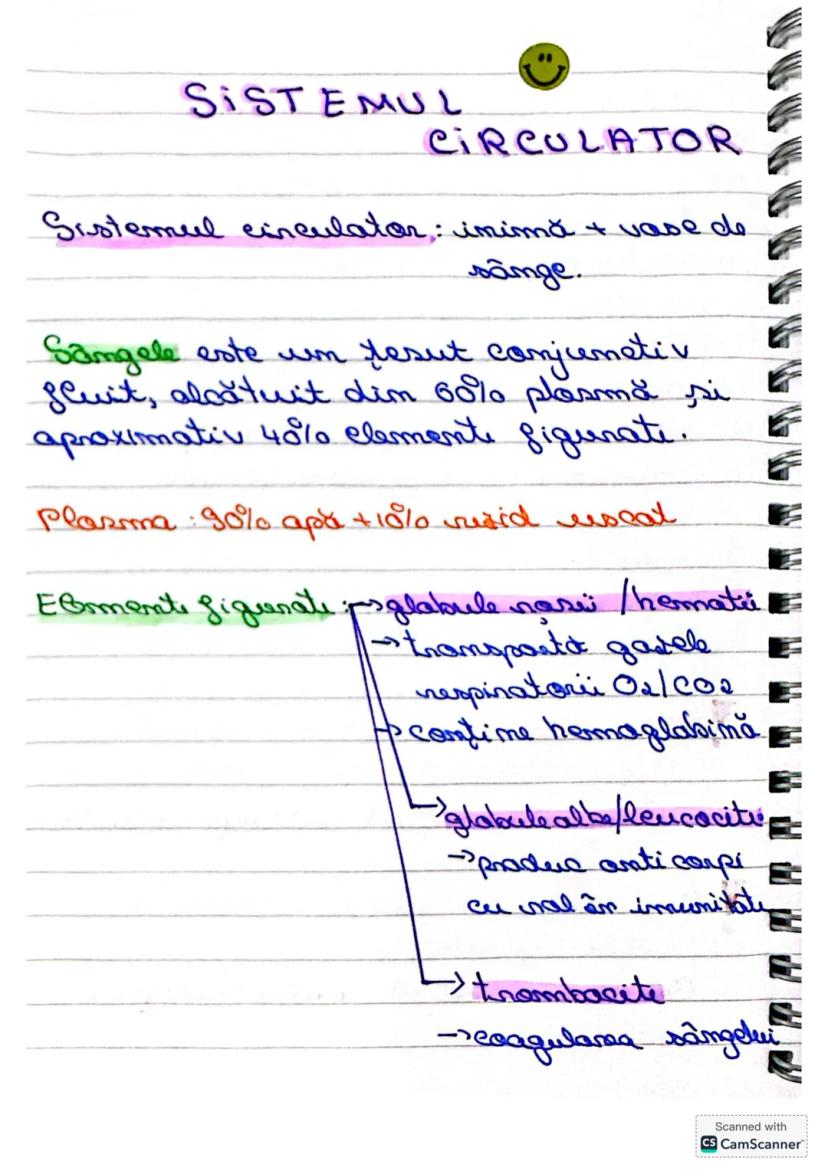 SiSTEMUL
CiRCULATOR
Sistemul circulator: inimă + vase de
sânge.
Sângele este un țesut conjunctiv
fluit, alcătuit din 60% plasmă și
aproximativ 40% elemente figurate.
Plasma: 90% apă + 10% rezid uscat
Elemente figurate: → globule roșii / hematii
→ transportă gazele
respiratorii O2/CO2
→ conține hemoglobină
→ globule albe/leucocite
→ produc anticorpi
cu rol în imunitate
→ trombocite
→ coagularea sângelui
Scanned with
CS CamScanner